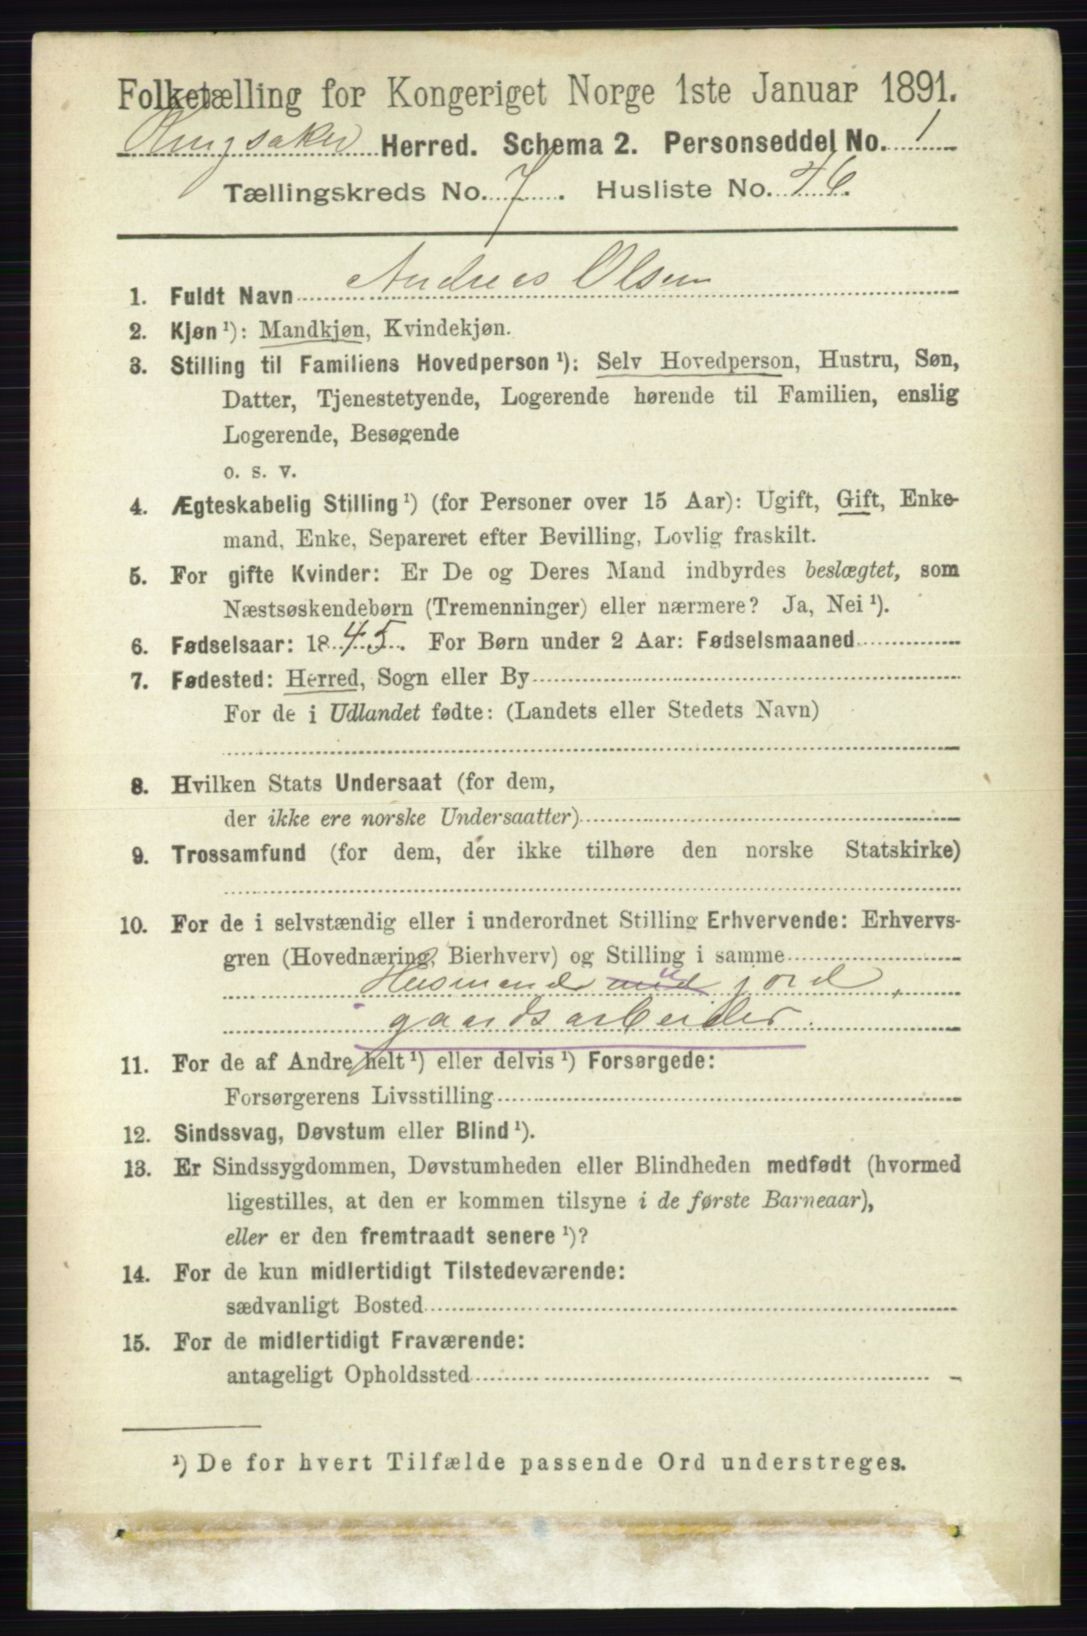 Folketælling for Kongeriget Norge 1ste Januar 1891.
Ringsaker Herred. Schema 2. Personseddel No. 1
Tællingskreds No. 7. Husliste No. 46.
1. Fuldt Navn Andreas Olsen
2. Kjøn ¹): Mandkjøn, Kvindekjøn.
3. Stilling til Familiens Hovedperson ¹): Selv Hovedperson, Hustru, Søn,
Datter, Tjenestetyende, Logerende hørende til Familien, enslig
Logerende, Besøgende
o. s. v.
4. Ægteskabelig Stilling ¹) (for Personer over 15 Aar): Ugift, Gift, Enke-
mand, Enke, Separeret efter Bevilling, Lovlig fraskilt.
5. For gifte Kvinder: Er De og Deres Mand indbyrdes beslægtet, som
Næstsøskendebørn (Tremenninger) eller nærmere? Ja, Nei ¹).
6. Fødselsaar: 1845. For Børn under 2 Aar: Fødselsmaaned
7. Fødested: Herred, Sogn eller By
For de i Udlandet fødte: (Landets eller Stedets Navn)
8. Hvilken Stats Undersaat (for dem,
der ikke ere norske Undersaatter)
9. Trossamfund (for dem, der ikke tilhøre den norske Statskirke)
10. For de i selvstændig eller i underordnet Stilling Erhvervende: Erhvervs-
gren (Hovednæring, Bierhverv) og Stilling i samme
Husmand med jord,
gaardsarbeider.
11. For de af Andre helt ¹) eller delvis ¹) Forsørgede:
Forsørgerens Livsstilling
12. Sindssvag, Døvstum eller Blind ¹).
13. Er Sindssygdommen, Døvstumheden eller Blindheden medfødt (hvormed
ligestilles, at den er kommen tilsyne i de første Barneaar),
eller er den fremtraadt senere ¹)?
14. For de kun midlertidigt Tilstedeværende:
sædvanligt Bosted
15. For de midlertidigt Fraværende:
antageligt Opholdssted
¹) De for hvert Tilfælde passende Ord understreges.